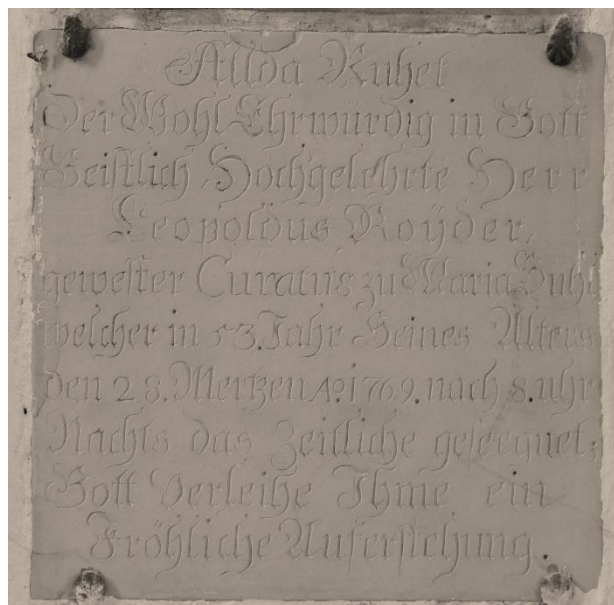 Allda Ruhet
Der Wohl Ehrwürdig in Gott
Geistlich Hochgelehrte Herr
Leopoldus Roÿder,
gewester Curatus zu Maria
welcher in 53. Jahr Seines Alters
den 28. Mertzen Aº. 1769. nach 8. uhr
Nachts das Zeitliche geseegnet:
Gott Verleihe Ihme ein
Fröhliche Auferstehung.